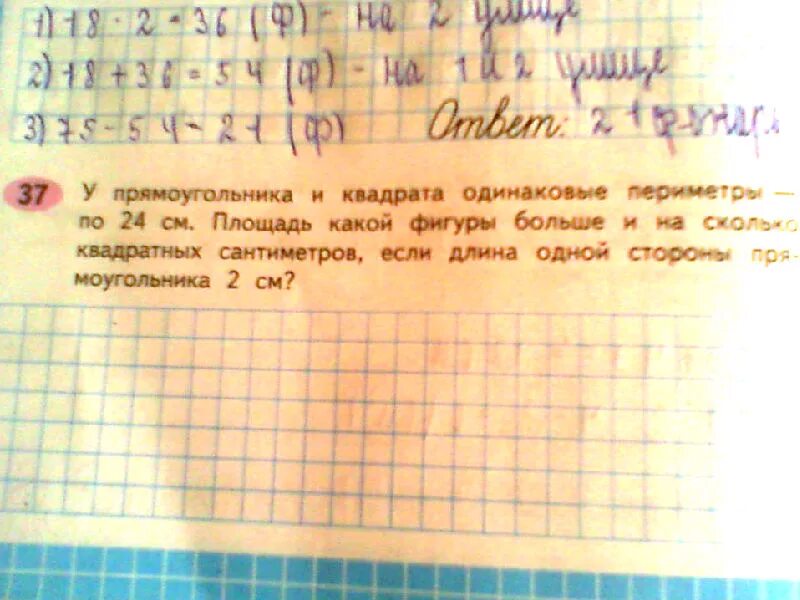 1) 18 · 2 = 36 (ф) - на 2 улице
2) 18 + 36 = 54 (ф) - на 1 и 2 улице
3) 75 - 54 = 21 (ф) Ответ: 21
37 У прямоугольника и квадрата одинаковые периметры —
по 24 см. Площадь какой фигуры больше и на сколько
квадратных сантиметров, если длина одной стороны пря-
моугольника 2 см?